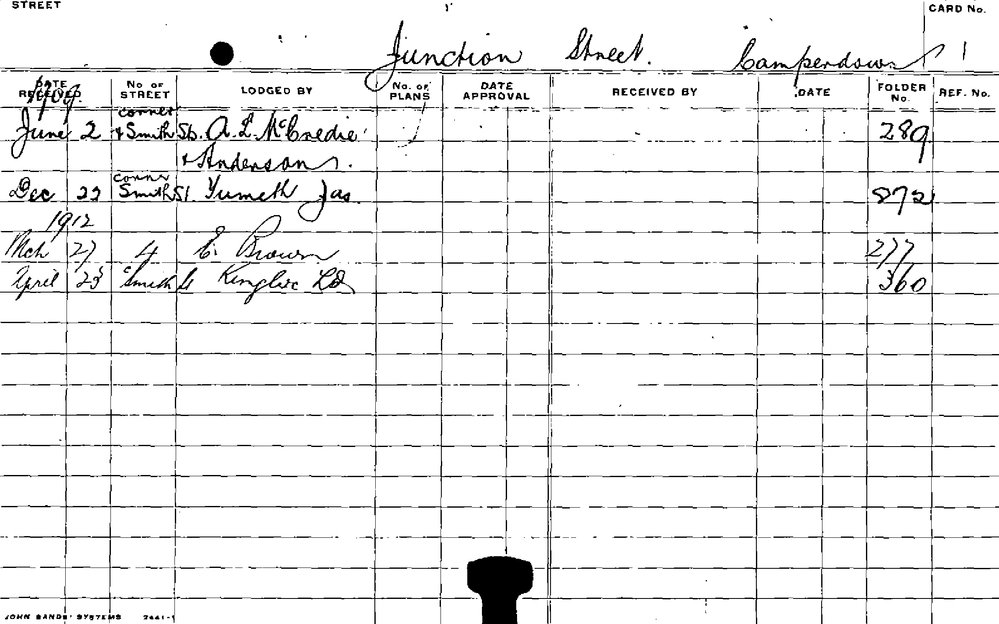 STREET
CARD No.
Junction Street. Camperdown 1
DATE RECEIVED No OF STREET LODGED BY No. of PLANS DATE APPROVAL RECEIVED BY DATE FOLDER No. REF. No.
1909.
corner
June 2 & Smith St. A. L. McCredie 289
& Anderson.
corner
Dec 22 Smith St. Jas. 872
1912
Mch 27 4 E. Brown 277
April 23 Smith St 360
JOHN SANDS' SYSTEMS 2441-1